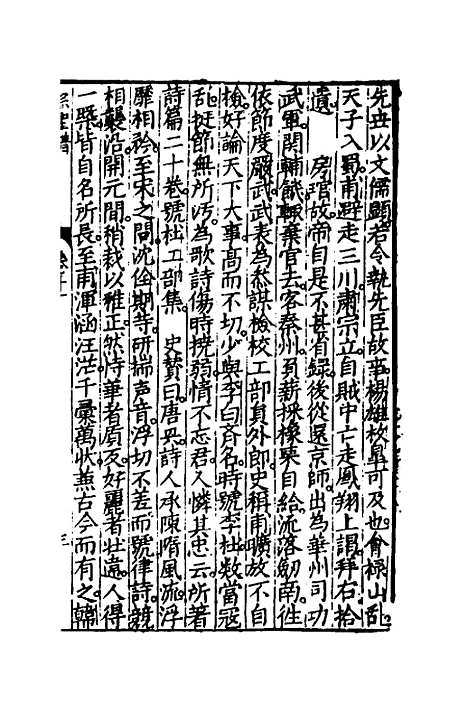 先世以文儒顯若令執先臣故事楊雄枚臯可及也會祿山乱
天子入蜀甫避走三川肅宗立自賊中亡走鳳翔上謁拜右拾
遺　房琯故帝自是不甚省録後從還京師出為華州司功
武軍関輔飢棄官去客秦州負薪採橡栗自給流落劒南徃
依節度嚴武武表為叅謀檢校工部員外郎史稱甫曠放不自
檢好論天下大事高而不切少與李白斉名時號李杜数當冦
乱挺節無所汚為歌詩傷時撓弱情不忘君人憐其忠云所著
詩篇二十卷號杜工部集　史賛曰唐興詩人承陳隋風流浮
靡相矜至宋之問沈佺期等研揣声音浮切不差而號律詩競
相襲沿開元間稍裁以雅正然恃華者质反好麗者壮違人得
一槩皆自名所長至甫渾涵汪茫千彚萬状蒸古今而有之韓